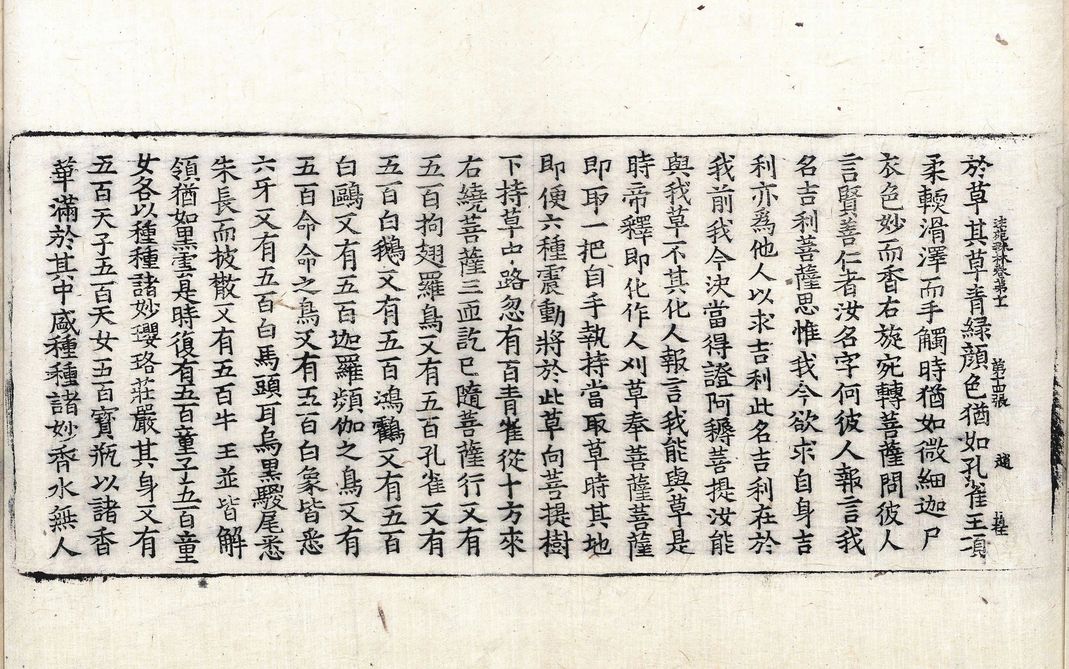 法苑珠林卷第十一 第十四張 趙
於草其草青綠顏色猶如孔雀王項
柔輭滑澤而手觸時猶如微細迦尸
衣色妙而香右旋宛轉菩薩問彼人
言賢善仁者汝名字何彼人報言我
名吉利菩薩思惟我今欲求自身吉
利亦爲他人以求吉利此名吉利在於
我前我今決當得證阿耨菩提汝能
與我草不其化人報言我能與草是
時帝釋即化作人刈草奉菩薩菩薩
即取一把自手執持當取草時其地
即便六種震動將於此草向菩提樹
下持草中路忽有百青雀從十方來
右繞菩薩三匝訖已隨菩薩行又有
五百拘翅羅鳥又有五百孔雀又有
五百白鵝又有五百鴻鶴又有五百
白鷗又有五百迦羅頻伽之鳥又有
五百命命之鳥又有五百白象皆悉
六牙又有五百白馬頭耳烏黑騣尾悉
朱長而披散又有五百牛王並皆解
領猶如黑雲是時復有五百童子五百童
女各以種種諸妙瓔珞莊嚴其身又有
五百天子五百天女五百寶瓶以諸香
華滿於其中盛種種諸妙香水無人